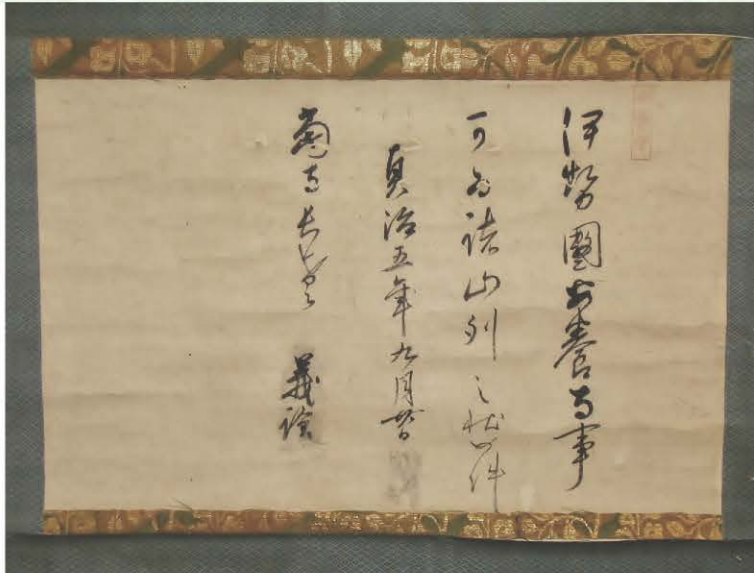 伊勢國安養寺事
可為諸山列之状如件
貞治五年九月
當寺長老 義詮